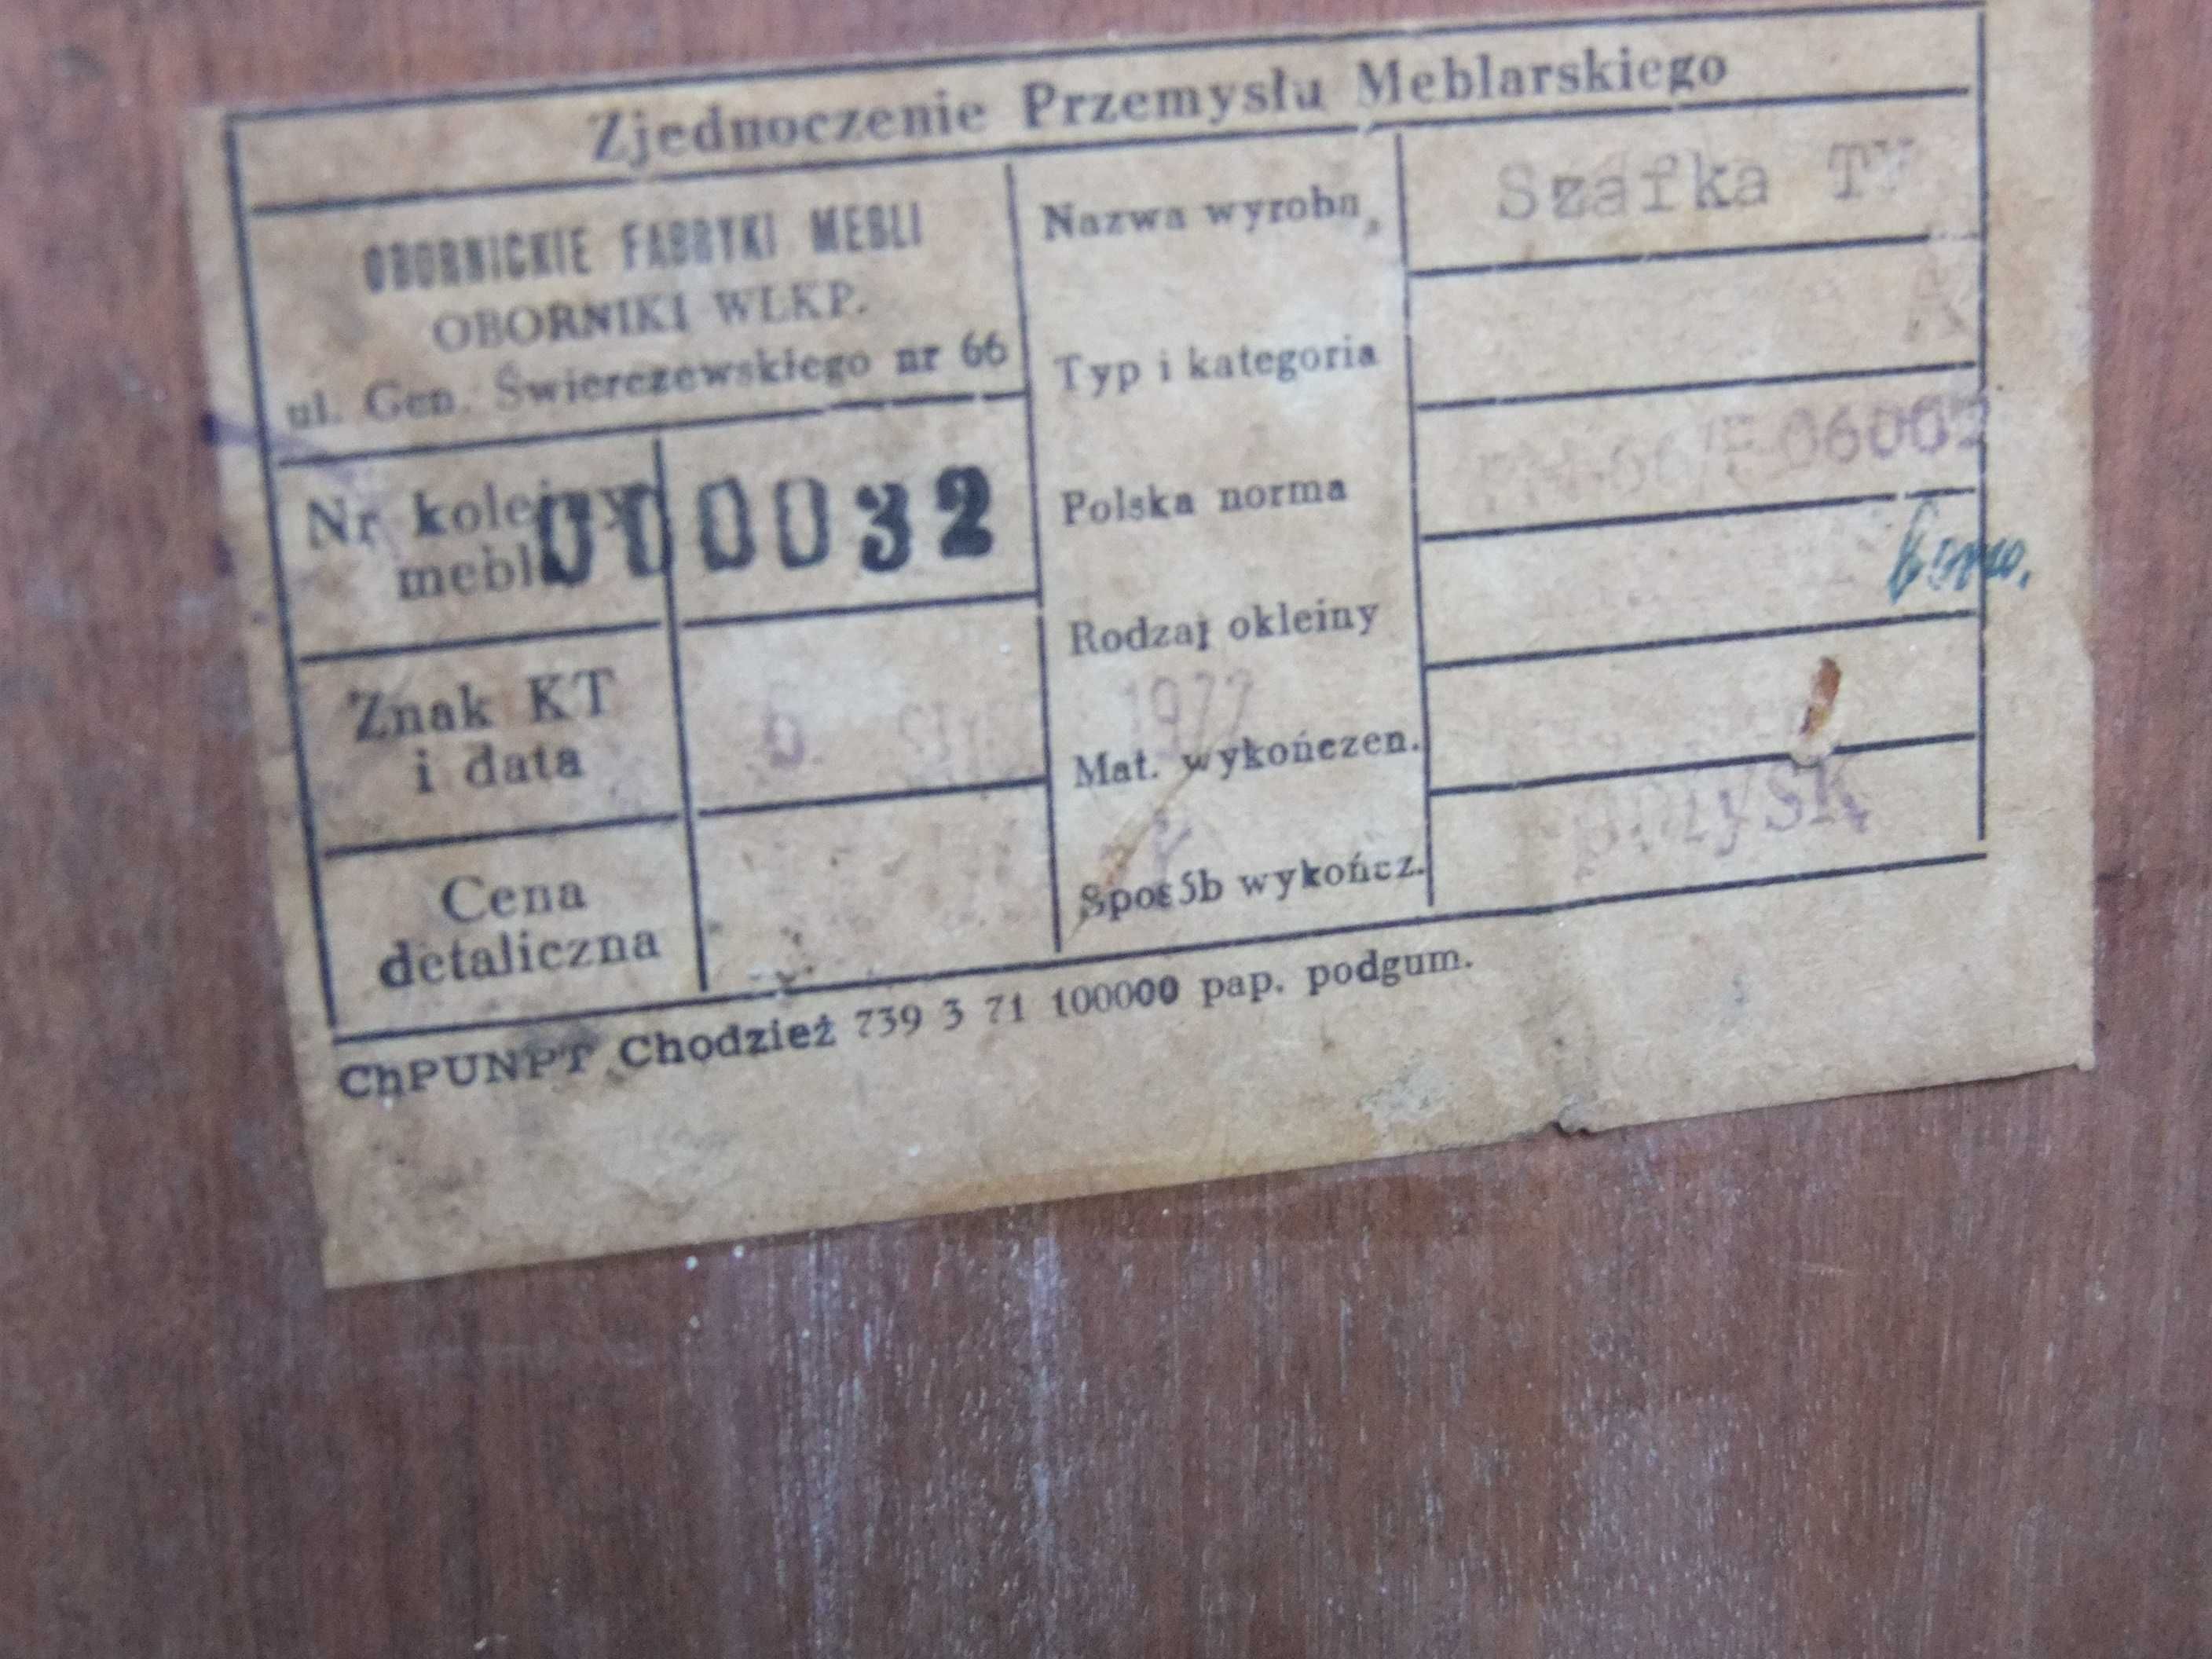 Zjednoczenie Przemysłu Meblarskiego
OBORNICKIE FABRYKI MEBLI
OBORNIKI WLKP.
ul. Gen. Świerczewskiego nr 66
Nr kolejny
mebla
000032
Znak KT
i data
1977
Cena
detaliczna
Nazwa wyrobu
Szafka TV
Typ i kategoria
A
Polska norma
06002
Rodzaj okleiny
Mat. wykończen.
Sposób wykończ.
połysk
ChPUNPT Chodzież 739 3 71 100000 pap. podgum.